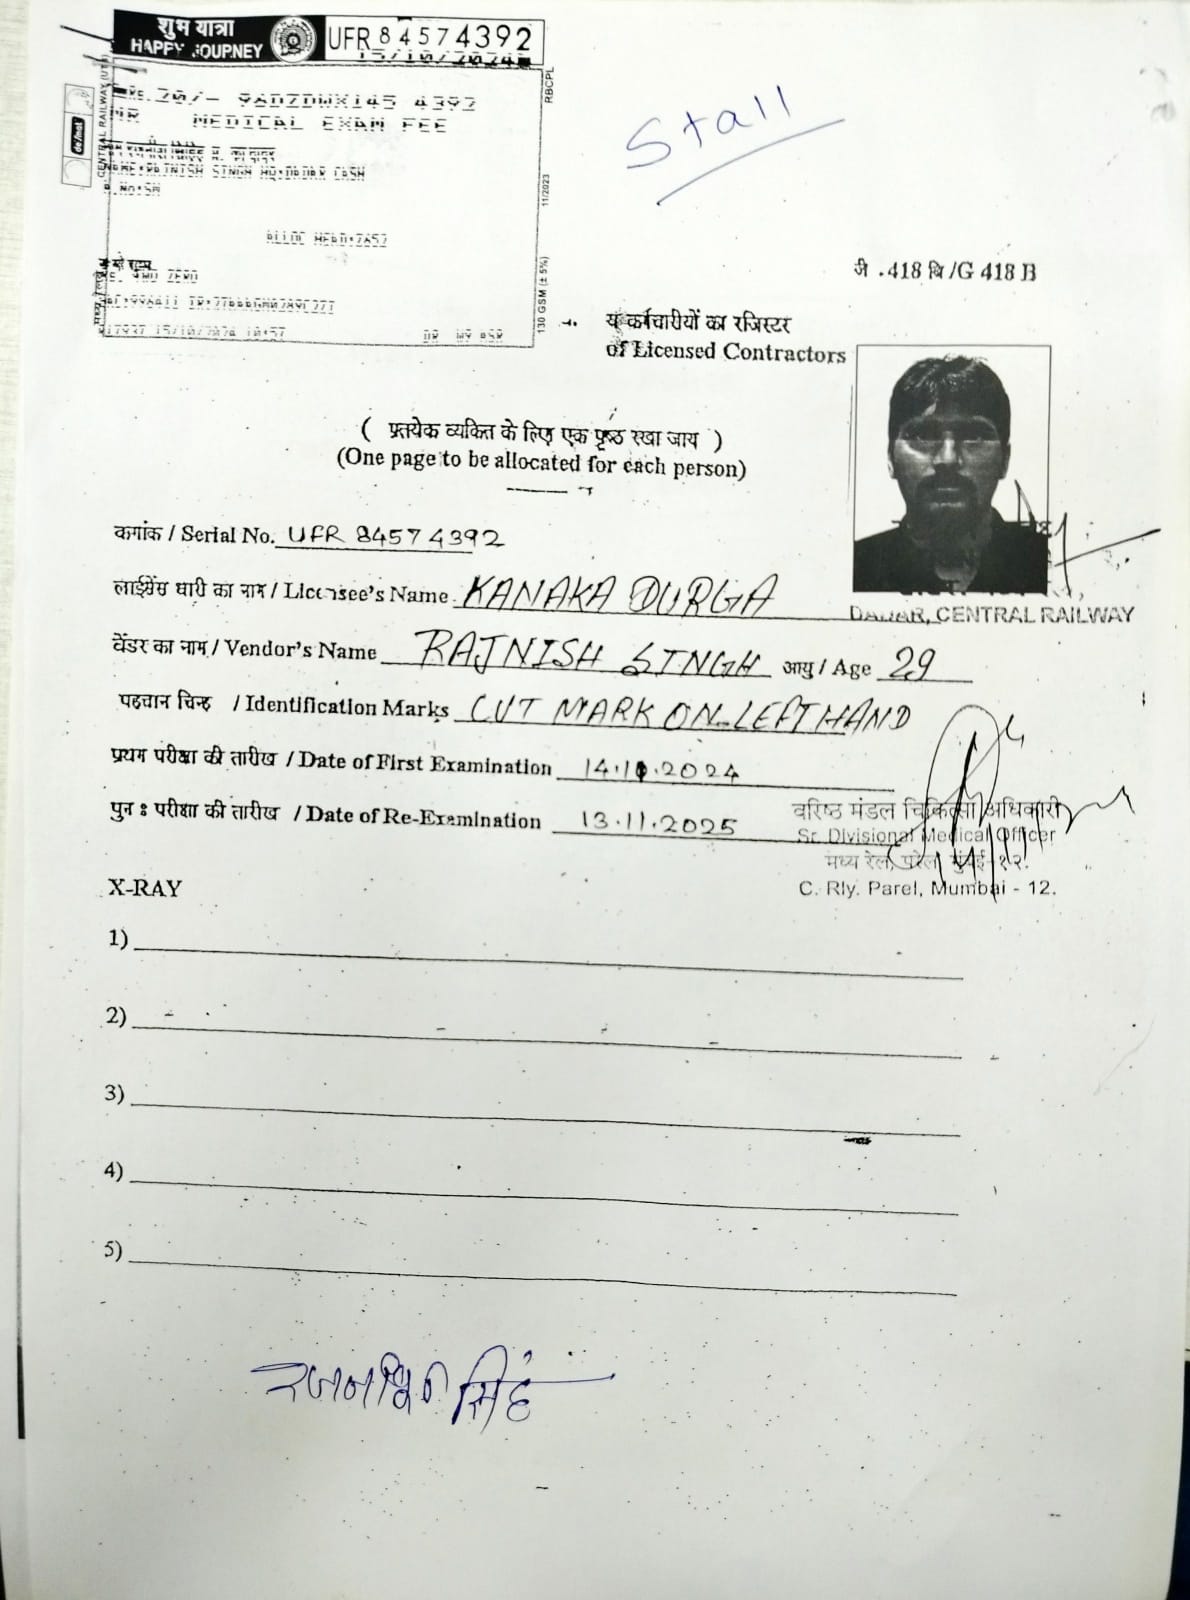 शुभ यात्रा
HAPPY JOURNEY
UFR 84574392
15/10/2024
Rs.20/- 9ADZDWX145 4392
MR MEDICAL EXAM FEE
NAME:RAJNISH SINGH HQ:DADAR CASH
ALLOC HEAD:2652
RS. TWO ZERO
15/10/2024 10:57
CENTRAL RAILWAY (UTS)
RBCPL
11/2023
130 GSM (± 5%)
Stall
जी .418 बि /G 418 B
य कर्मचारीयों का रजिस्टर
of Licensed Contractors
( प्रत्येक व्यकित के लिए एक पृष्ठ रखा जाय )
(One page to be allocated for each person)
कगांक / Serial No. UFR 84574392
लाईसेंस धारी का नाम / Licensee's Name KANAKA DURGA
DADAR, CENTRAL RAILWAY
वेंडर का नाम / Vendor's Name RAJNISH SINGH आयु / Age 29
पहचान चिन्ह / Identification Marks CUT MARK ON LEFT HAND
प्रथम परीक्षा की तारीख / Date of First Examination 14.10.2024
पुन : परीक्षा की तारीख / Date of Re-Examination 13.11.2025
वरिष्ठ मंडल चिकित्सा अधिकारी
Sr. Divisional Medical Officer
मध्य रेल, परेल, मुंबई-१२.
C. Rly. Parel, Mumbai - 12.
X-RAY
1)
2)
3)
4)
5)
रजनीश सिंह